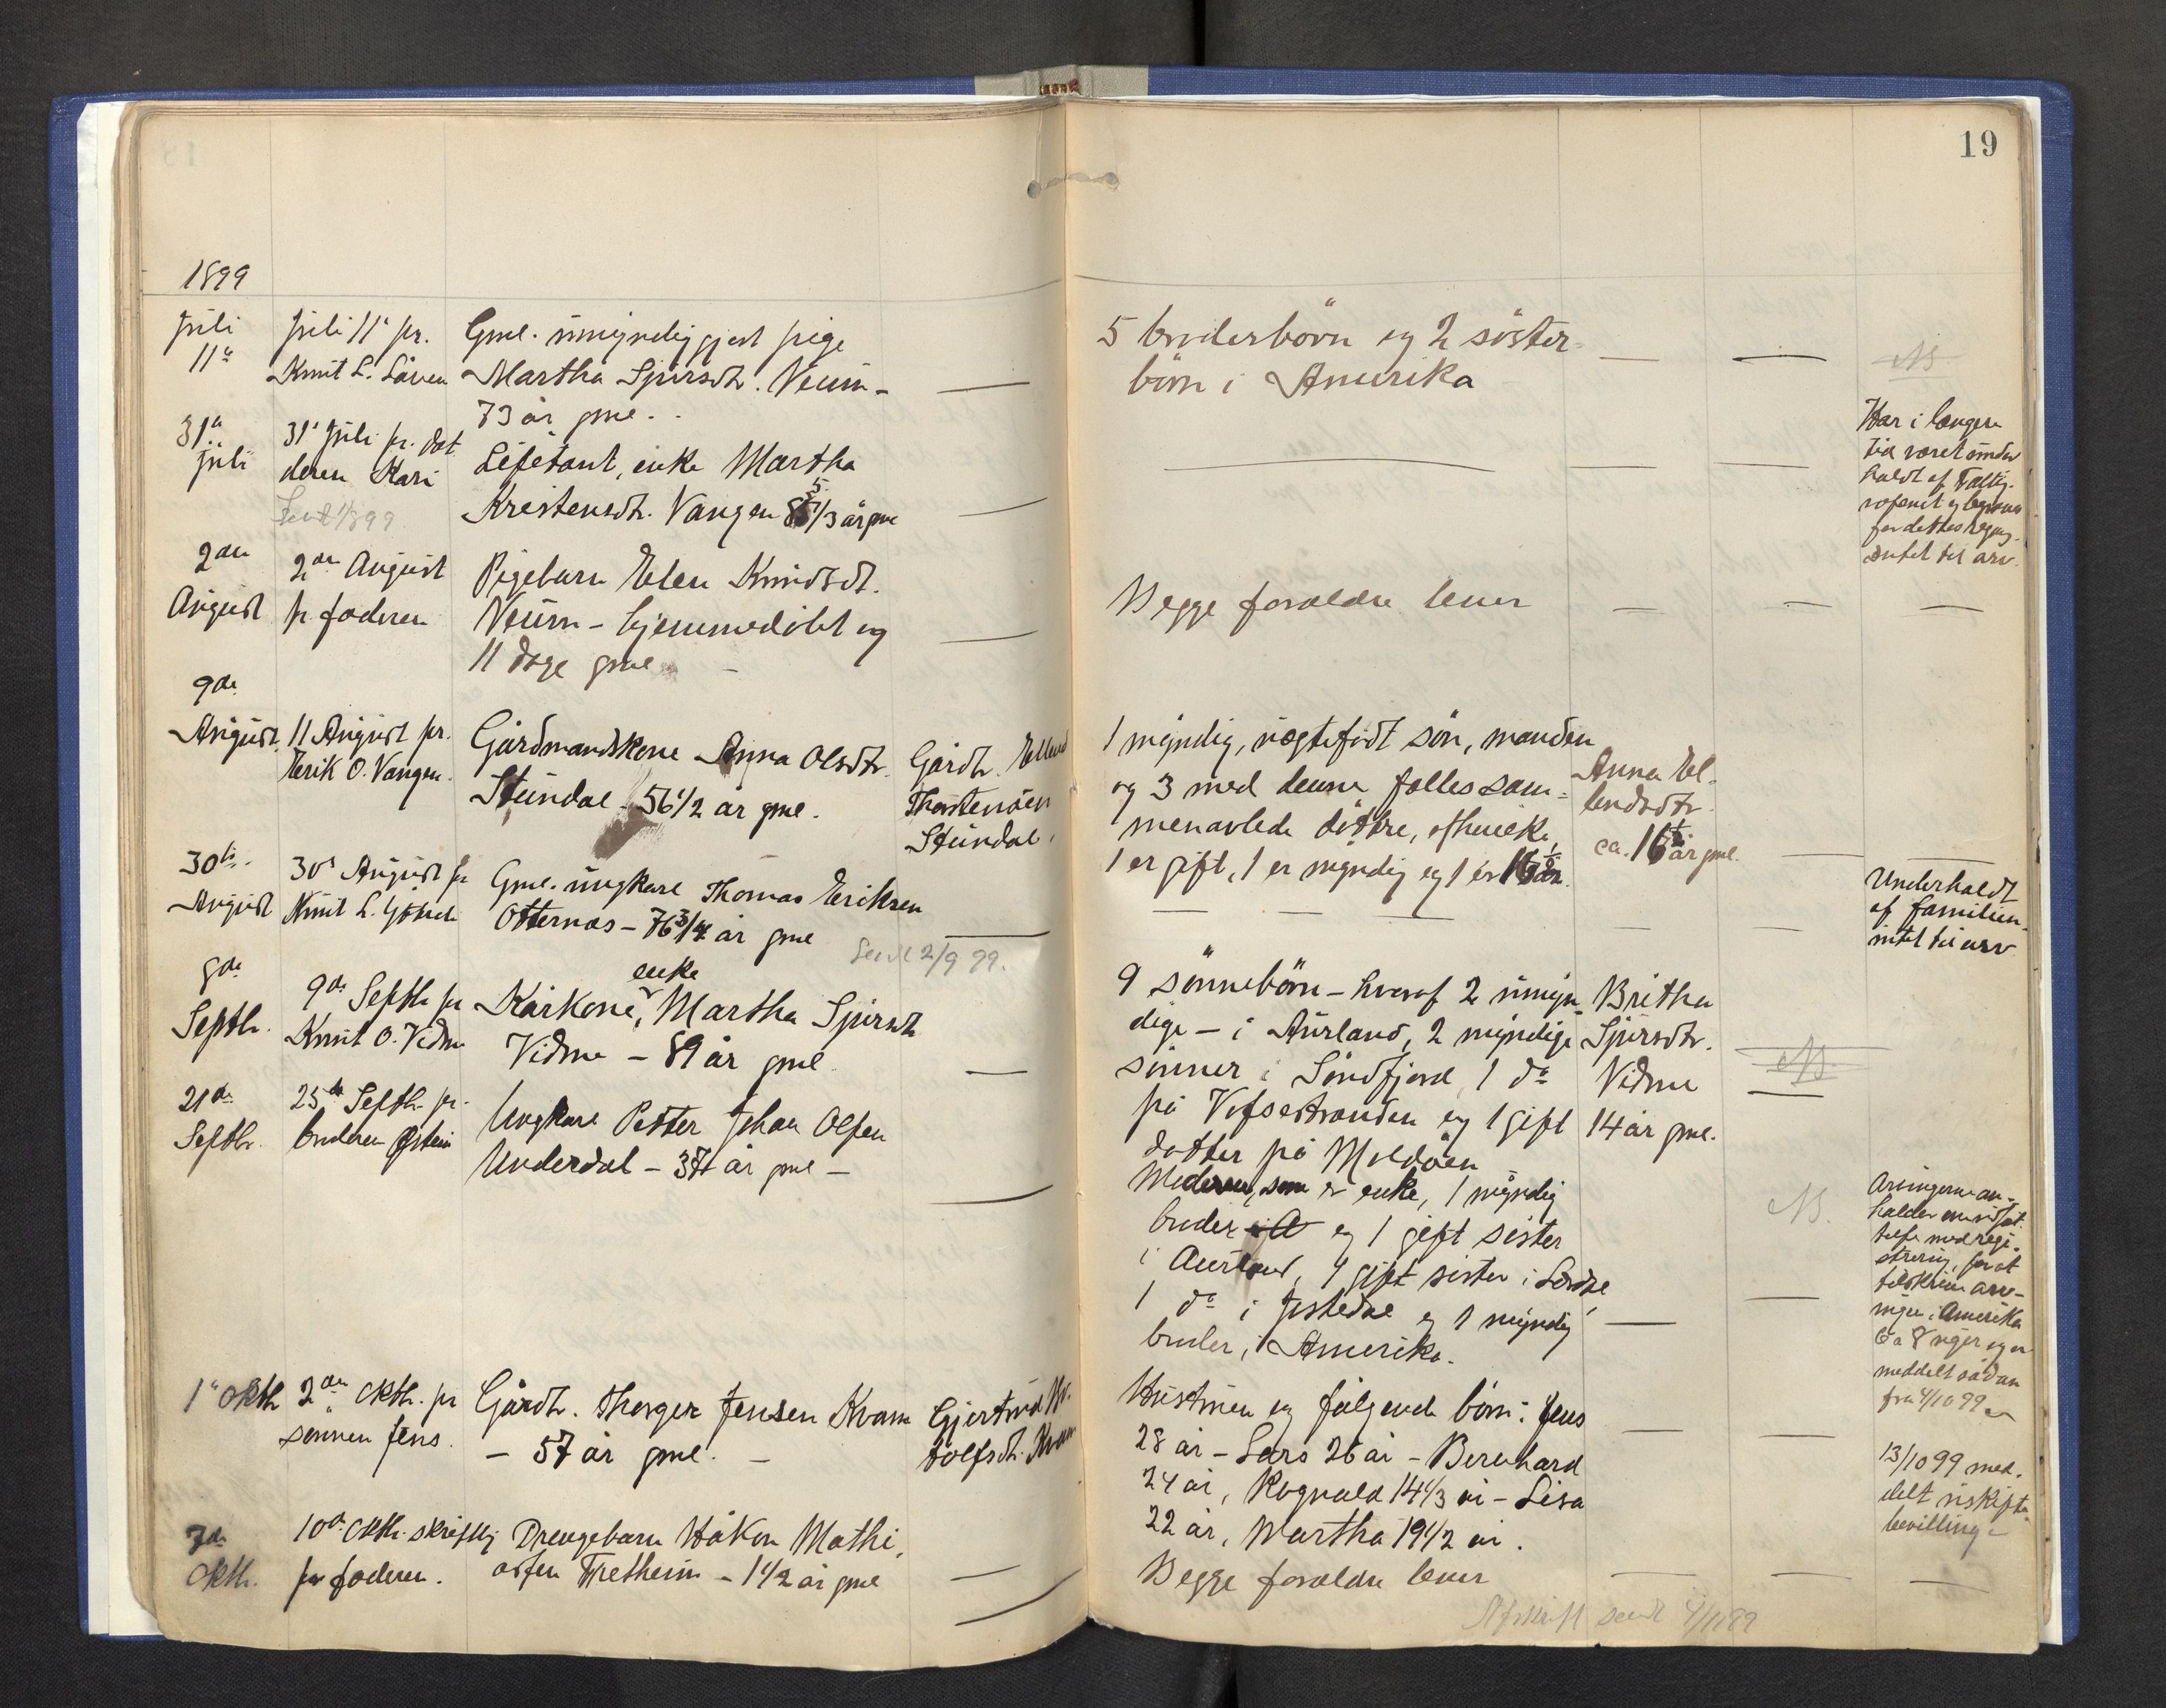 19
1899
Juli
11te
Juli 11te pr.
Knut L. Låven
Gml. umyndiggjort pige
Martha Sjursdtr. Veum -
73 år gml. -
5 broderbörn og 2 söster-
börn i Amerika
31te
juli
31te Juli pr. dat
deren Kari
Sendt 1/8 99
Lefetant, enke Martha
Kristensdtr. Vangen 85 1/3 år gml
Har i længere
tid været under
holdt af Fattig-
for dettes regng.
Intet til arv.
2den
August
2den August
pr faderen
Pigebarn Elen Knudsdt.
Veum - hjemmedöbt og
11 dage gml -
Begge forældre lever
9de
August
11 August pr.
Erik O. Vangen.
Gårdmandskone Anna Olsdtr.
Stundal - 56 1/2 år gml.
Gårdbr. Ellend
Thorstensen
Stundal.
1 myndig, uægtefødt sön, manden
og 3 med denne fælles sam-
menavlede döttre, af hvilke
1 er gift, 1 er myndig og 1 er 16 1/2 år.
Anna El-
lendsdtr.
ca. 16 1/2 år gml.
30te
August
30te August pr
Knut L.
Gml. ungkare Thomas Eriksen
Otternæs - 76 3/4 år gml
Sendt 2/9 99.
Underholdt
af familien
intet til arv
8de
Septbr.
9de Septbr pr
Knut O. Vidme
enke
Kårkone, Martha Sjursdtr
Vidme - 89 år gml.
9 sönnebörn - hvoraf 2 umyn-
dige - i Aurland, 2 myndige
sönner i Söndfjord, 1 do
på Vefsestranden og 1 gift
datter på Moldöen
Britha
Sjursdtr.
Vidme
14 år gml.
21de
Septbr.
25de Septbr. pr.
broderen Østein
Ungkare Petter Johan Olsen
Underdal - 37 år gml -
Moderen, som er enke, 1 myndig
broder i A og 1 gift sister
i Aurland, 4 gift sister i Lærdal,
1 do i Jostedal og 1 myndig
broder i Amerika.
NB.
Arvingerne an-
holder om udsæt-
telse med regi-
strering, for at
tilskrive arv-
ingen i Amerika
Ca 8 uger og er
meddelt sådan
fra 4/10 99
1te Oktbr
2den Oktbr. pr
sönnen Jens.
Gårdbr. Thorger Jensen Kvam
- 57 år gml. -
Gjertrud
Kvam
Hustruen og følgende börn: Jens
28 år - Lars 26 år - Bernhard
24 år, Ragnvald 14 1/3 år - Lisa
22 år, Martha 19 1/2 år.
13/10 99 med-
delt uskifte-
bevilling
7de
Oktbr.
10de Oktbr. skriftlig
fra faderen.
Drengebarn Håkon Mathi-
assen Fretheim - 1 1/2 år gml
Begge forældre lever
Afskrift sendt 4/11 99